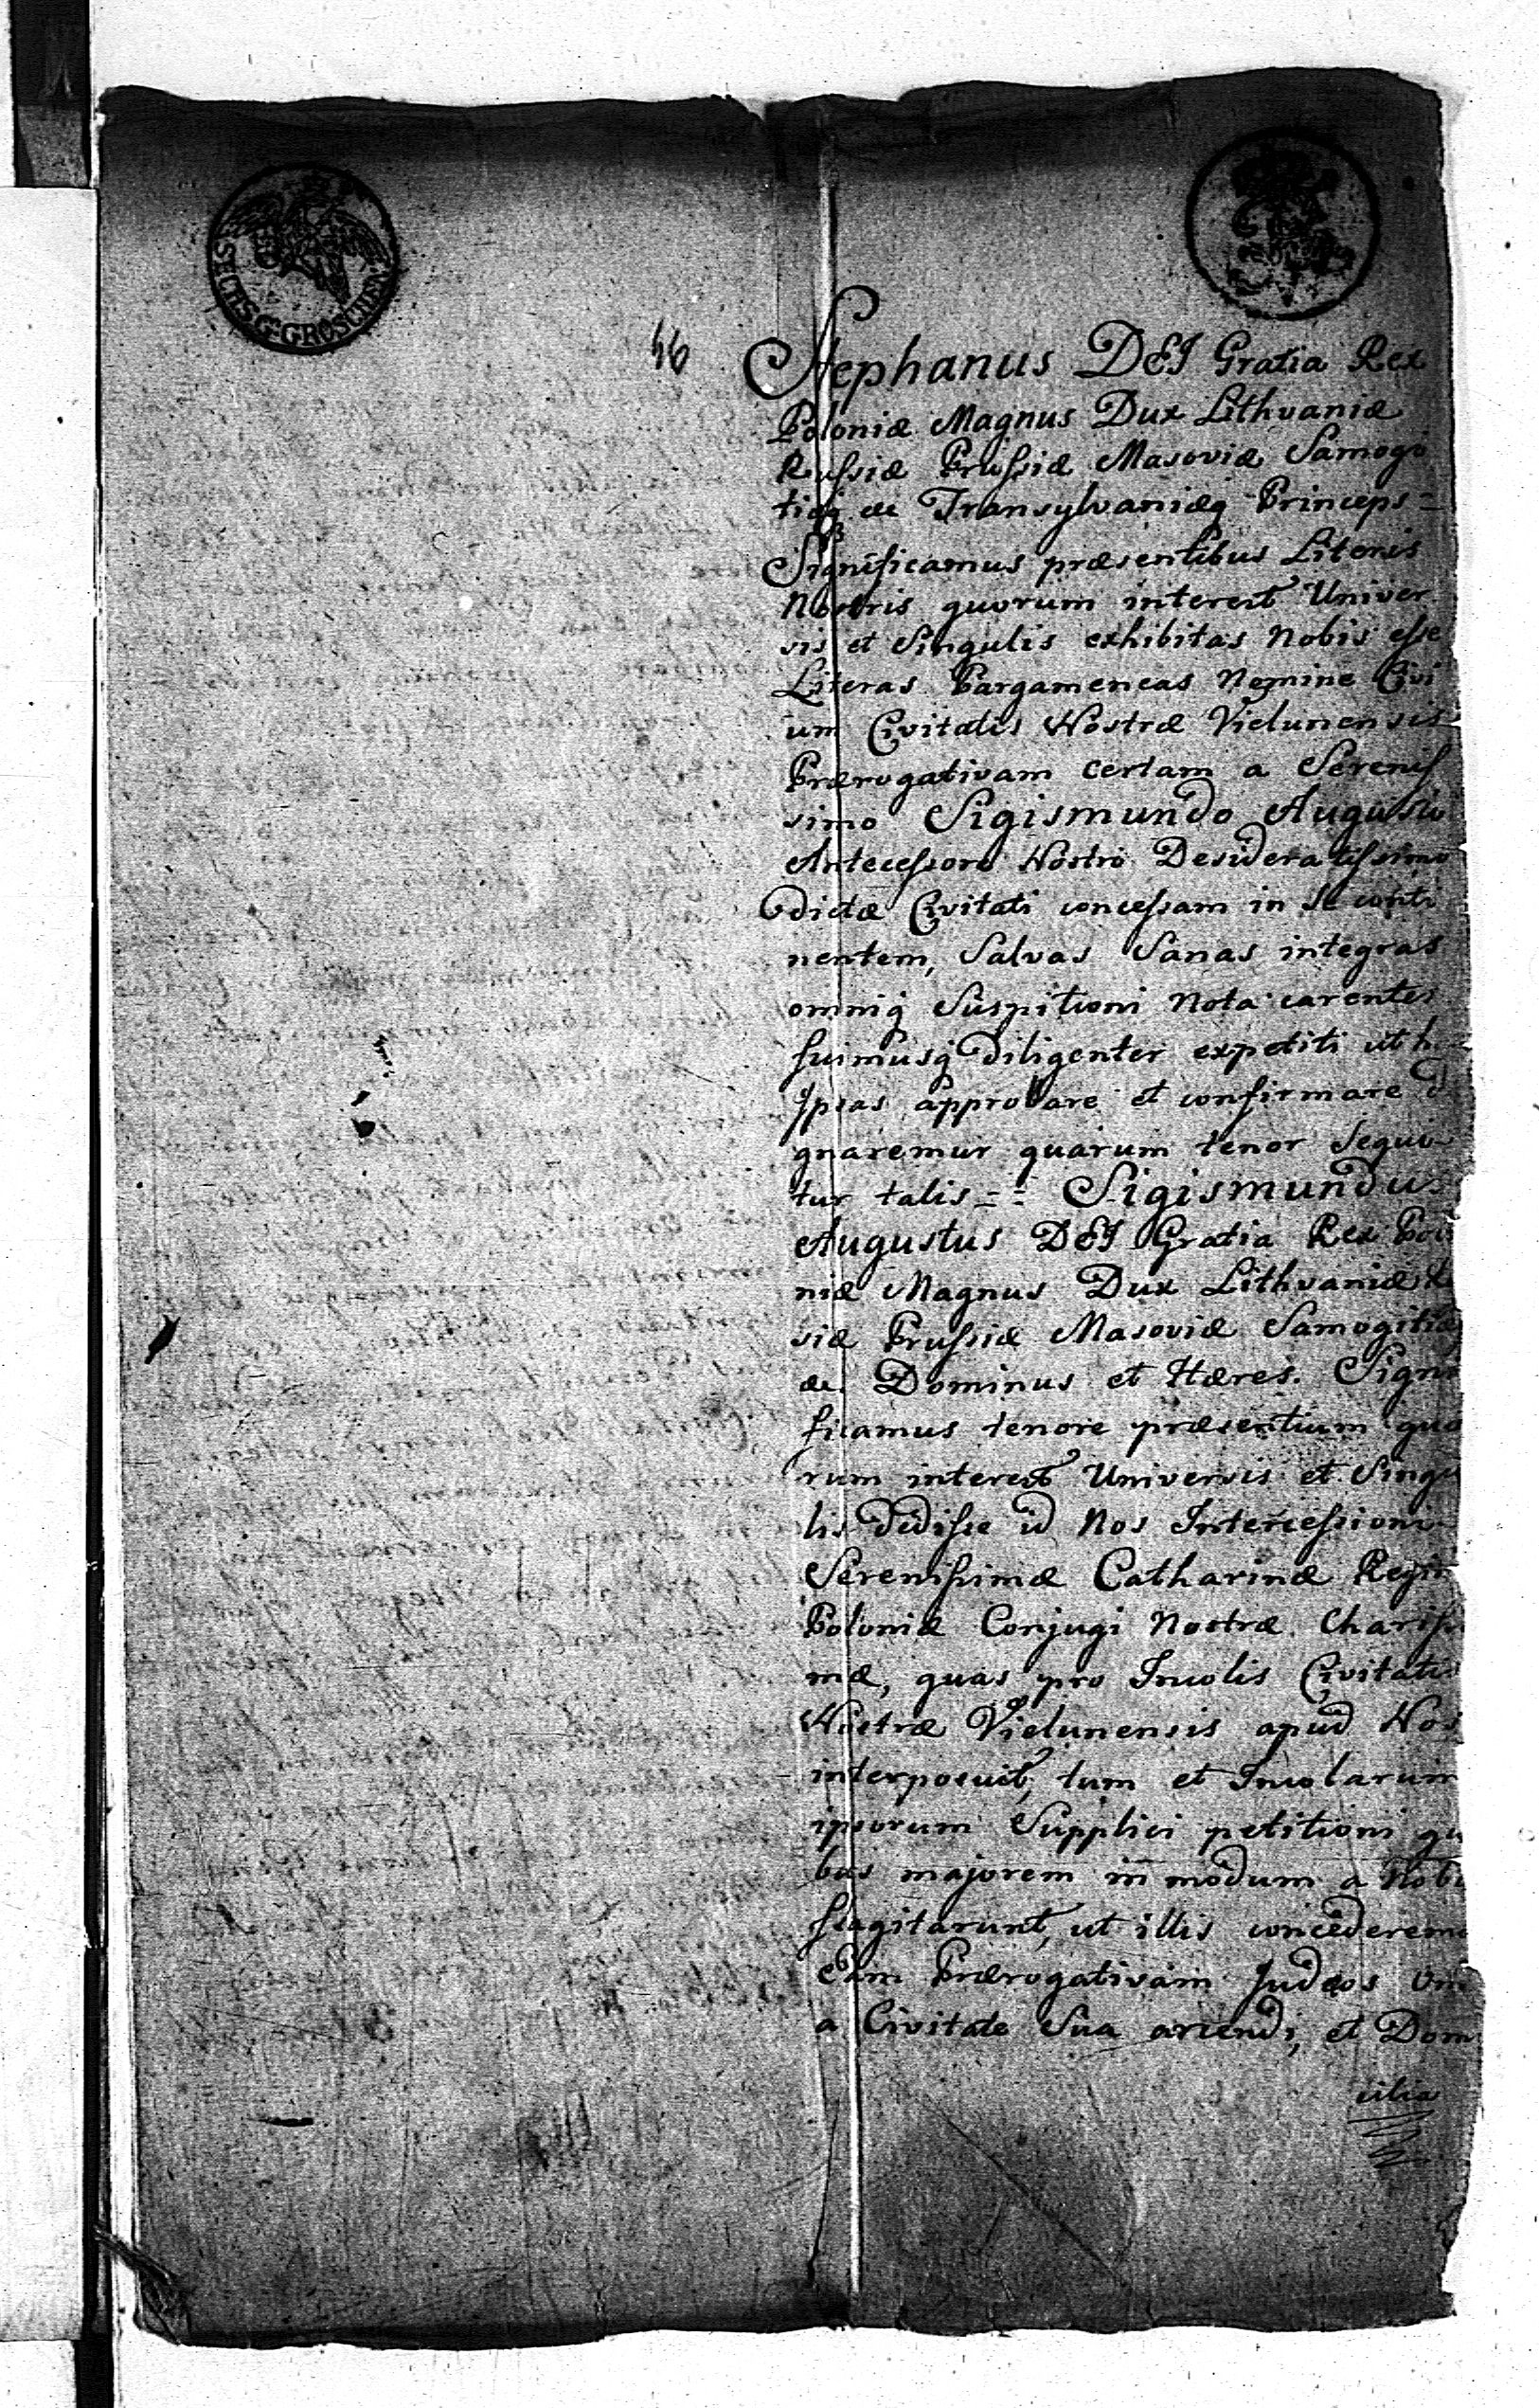 SECHS G. GROSCHEN
Stephanus DEI Gratia Rex
Poloniæ Magnus Dux Lithvaniæ
Russiæ Prussiæ Masoviæ Samogi
tiæq ac Transylvaniæq Princeps =
Significamus præsentibus Literis
Nostris quorum interest Univer
sis et Singulis exhibitas Nobis esse
Literas Pargameneas Nomine Civi
um Civitatis Nostræ Vielunensis
Prærogativam certam a Serenis
simo Sigismundo Augusto
Antecessore Nostro Desideratissimo
dictæ Civitati concessam in se conti
nentem, Salvas Sanas integras
omniq Suspitioni Nota carentes
fuimusq diligenter expetiti ut h
Ipsas approbare et confirmare d
gnaremur quarum tenor Sequi
tur talis == Sigismundus
Augustus DEI Gratia Rex Polo
niæ Magnus Dux Lithvaniæ R
siæ Prussiæ Masoviæ Samogitiæ
ac Dominus et Hæres. Signi
ficamus tenore præsentium quo
rum interest Universis et Singu
lis dedisse id Nos Intercessioni
Serenissimæ Catharinæ Regin
Poloniæ Conjugi Nostræ Charissi
mæ, quas pro Incolis Civitatis
Nostræ Vielunensis apud Nos
interposuit, tum et Incolarum
ipsorum Supplici petitioni qu
bus majorem in modum a Nobi
flagitarunt, ut illis concederemu
Eam Prærogativam Judæos om
a Civitate Sua arcendi, et Dom
cilia